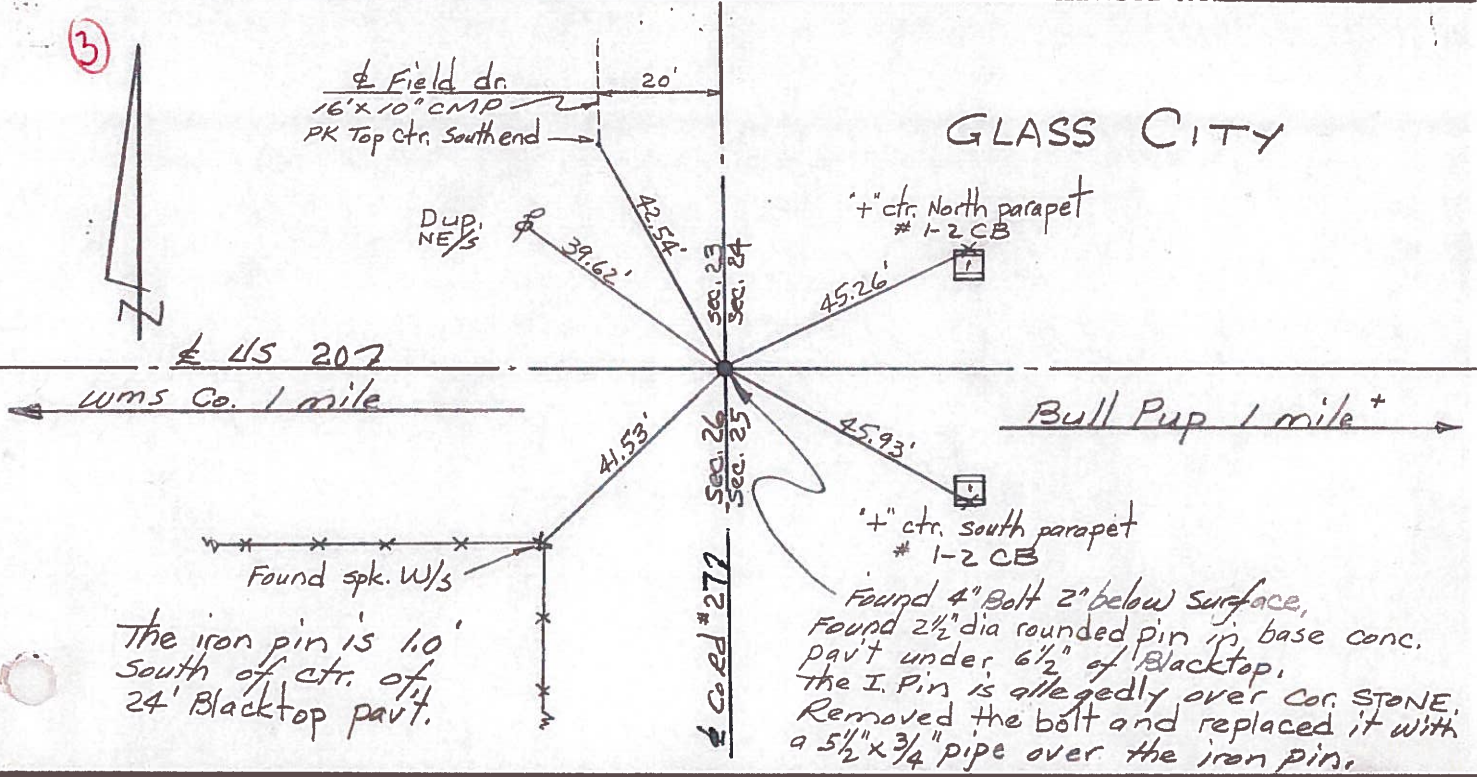 3
℄ Field dr.
20'
16' x 10" CMP
PK Top Ctr. South end
GLASS CITY
"+" ctr. North parapet
# 1-2 CB
Dup.
NE/s
42.54'
39.62'
Sec. 23
Sec. 24
45.26'
N
℄ US 207
Wms Co. 1 mile
Bull Pup 1 mile +
41.53'
Sec. 26
Sec. 25
45.93'
"+" ctr. South parapet
# 1-2 CB
Found spk. W/s
℄ Co Rd # 277
The iron pin is 1.0'
South of ctr. of
24' Blacktop pav't.
Found 4" Bolt 2" below Surface,
Found 2½" dia rounded pin in base conc.
pav't under 6½" of Blacktop.
The I. Pin is allegedly over Cor. STONE.
Removed the bolt and replaced it with
a 5½" x 3/4" pipe over the iron pin.